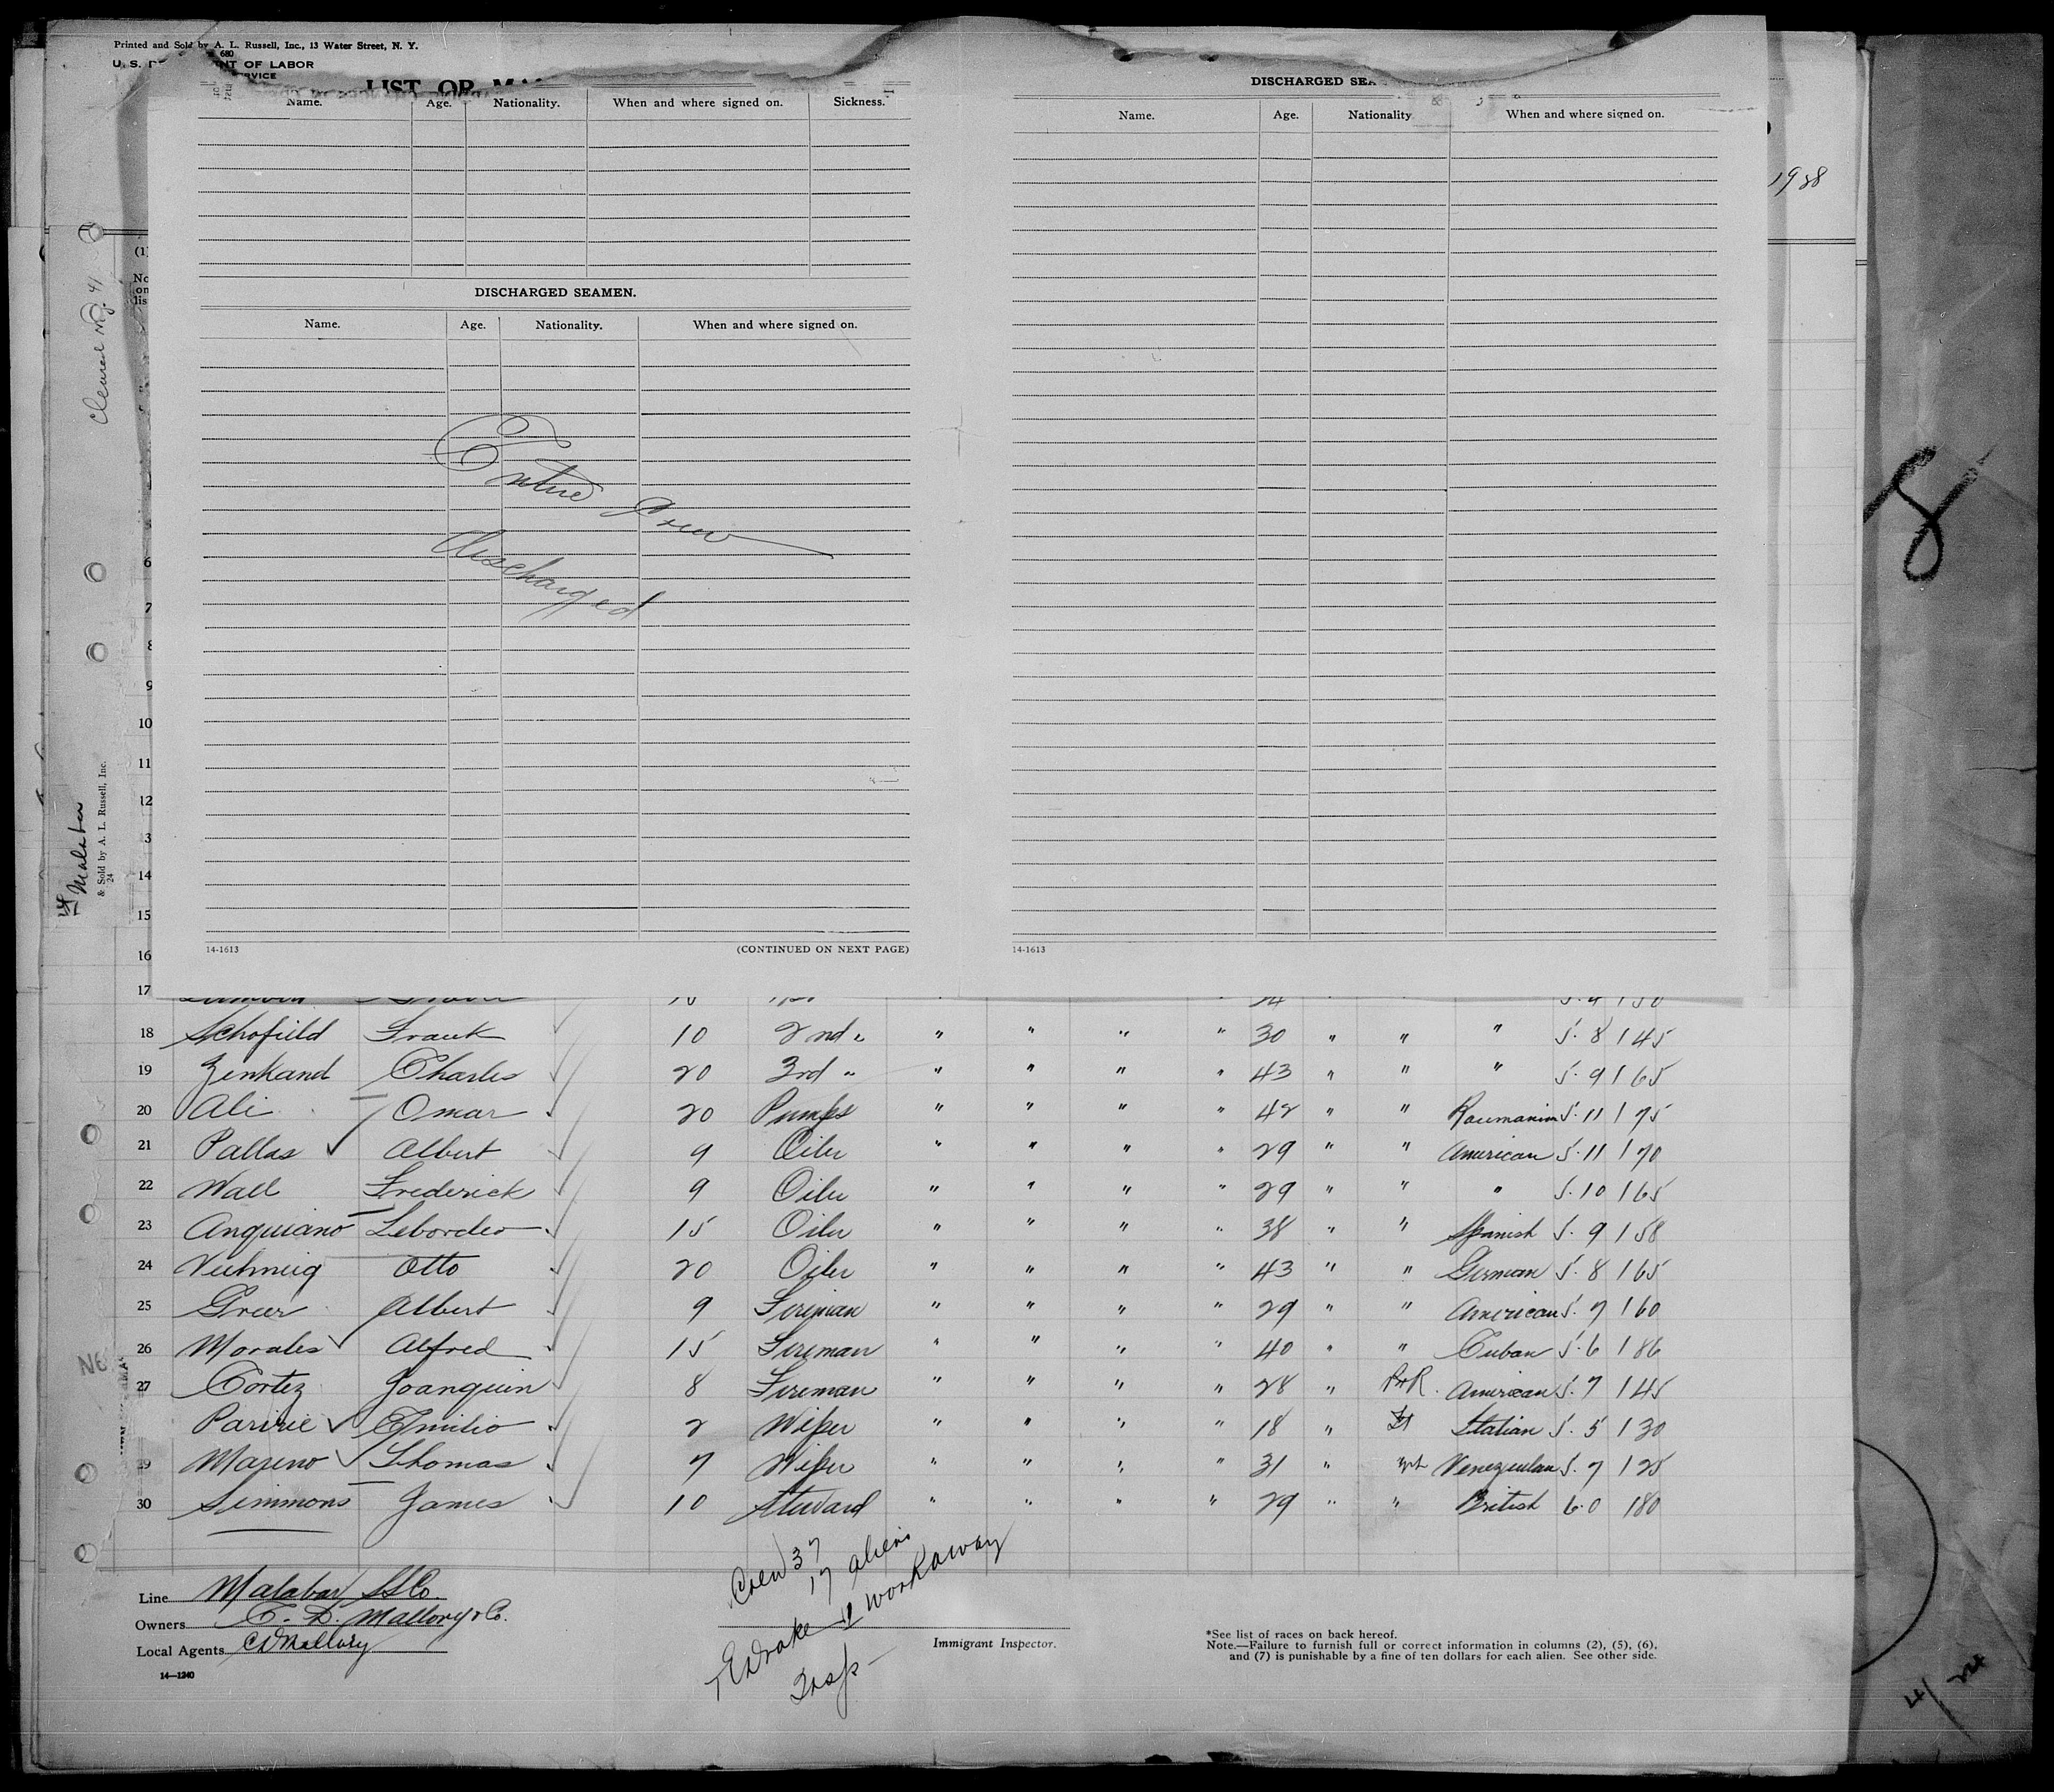 Printed and Sold by A. L. Russell, Inc., 13 Water Street, N. Y.
680
U. S. OF LABOR
LIST OR
Name. Age. Nationality. When and where signed on. Sickness.
DISCHARGED SEAMEN.
Name. Age. Nationality. When and where signed on.
Entire Crew
discharged
14-1613 (CONTINUED ON NEXT PAGE)
DISCHARGED SEA
Name. Age. Nationality When and where signed on.
14-1613
1928
8
Cleared
Malabar
& Sold by A. L. Russell, Inc.
24
(1)
No
on
lis
6
7
8
9
10
11
12
13
14
15
16
17
18 Schofield Frank 10 2nd " " " " " 30 " " " 5.8 145
19 Zenkand Charles 20 3rd " " " " " 43 " " " 5.9 165
20 Ali Omar 20 Pumps " " " " 42 " " Roumanian 5.11 175
21 Pallas Albert 9 Oiler " " " " 29 " " American 5.11 170
22 Wall Frederick 9 Oiler " " " " 29 " " " 5.10 165
23 Anquiano 15 Oiler " " " " 38 " " Spanish 5.9 158
24 Otto 20 Oiler " " " " 43 " " German 5.8 165
25 Greer Albert 9 Fireman " " " " 29 " " American 5.7 160
26 Morales Alfred 15 Fireman " " " " 40 " " Cuban 5.6 186
27 Cortez Joanquin 8 Fireman " " " " 28 " American 5.7 145
Emilio 2 Wiper " " " " 18 " It Italian 5.5 130
29 Mareno Thomas 7 Wiper " " " " 31 " Venezuelan 5.7 125
30 Simmons James 10 Steward " " " " 29 " " British 6.0 180
Crew 37
17 aliens
workaway
EDrake
Insp
Line Malabar SS Co.
Owners C. D. Mallory & Co.
Local Agents CDMallory
14—1240
Immigrant Inspector.
*See list of races on back hereof.
Note.—Failure to furnish full or correct information in columns (2), (5), (6),
and (7) is punishable by a fine of ten dollars for each alien. See other side.